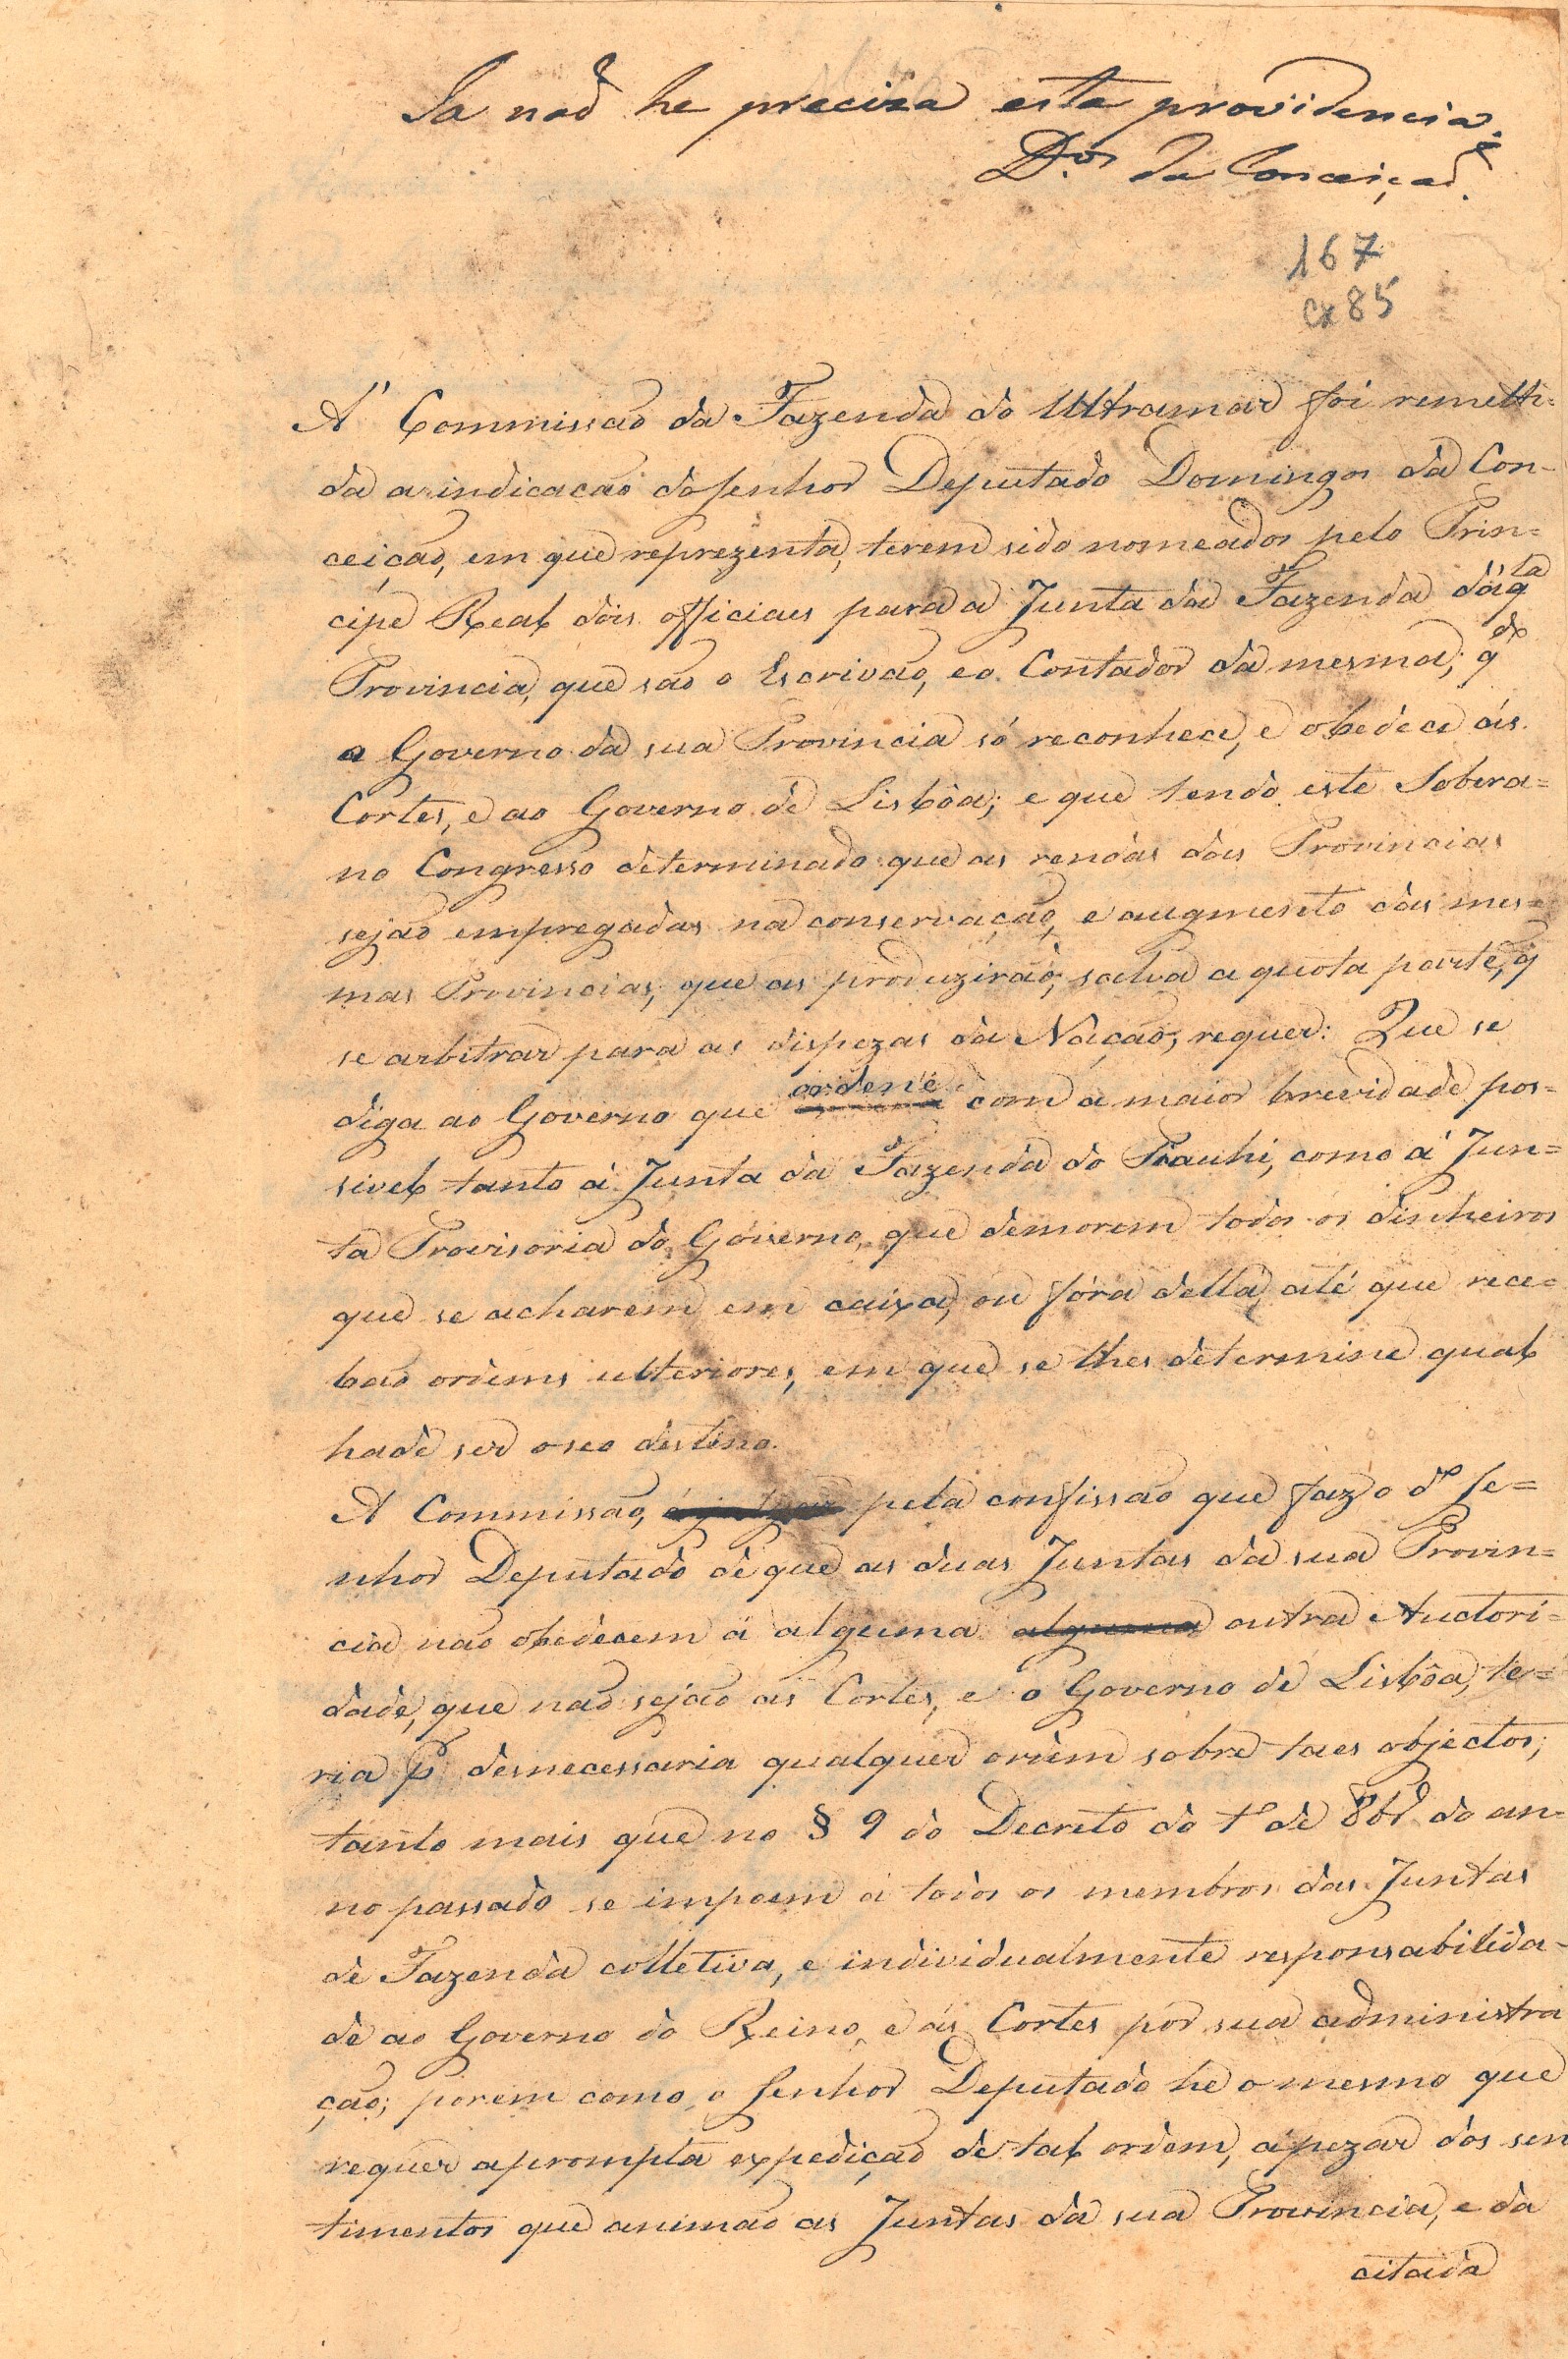 Ja naõ he preciza esta providencia.
D.os da Conceiçaõ.
167
Cx 85
A' Commissão da Fazenda do Ultramar foi remetti-
da a indicacão do Senhor Deputado Domingos da Con-
ceição, em que reprezenta, terem sido nomeados pelo Prin=
cipe Real dois officiaes para a Junta da Fazenda dáq.la
Provincia, que são o Escrivão, e o Contador da mesma; q
o Governo da sua Provincia só reconhece, e obedece ás
Cortes, e ao Governo de Lisbôa; e que tendo este Sobera=
no Congresso determinado que as rendas das Provincias
sejão empregadas na conservação, e augmento das mes=
mas Provincias, que as produzirão, salva a quota parte, q
se arbitrar para as dispezas da Nação, requer: Que se
diga ao Governo que ordene com a maior brevidade pos=
sivel tanto à Junta da Fazenda do Piauhi, como á Jun=
ta Provisoria do Governo, que demorem todos os dinheiros
que se acharem em caixa, ou fóra della, até que rece=
bão ordens ulteriores, em que se lhes determine qual
hade ser o seo destino.
A Commissão, á julgar pela confissão que faz o d.o Se=
nhor Deputado de que as duas Juntas da sua Provin=
cia não obedecem á alguma alguma outra Auctori=
dade, que não sejão as Cortes, e o Governo de Lisbôa, te=
ria p desnecessaria qualquer ordem sobre taes objectos;
tanto mais que no § 9 do Decreto do 1.o de 8br.o do an-
no passado se impoem á todos os membros das Juntas
de Fazenda colletiva, e individualmente responsabilida-
de ao Governo do Reino, e ás Cortes por sua administra
ção; porem como o Senhor Deputado he o mesmo que
requer a prompta expedição de tal ordem, apezar dos sen
timentos que animão as Juntas da sua Provincia, e da
citada